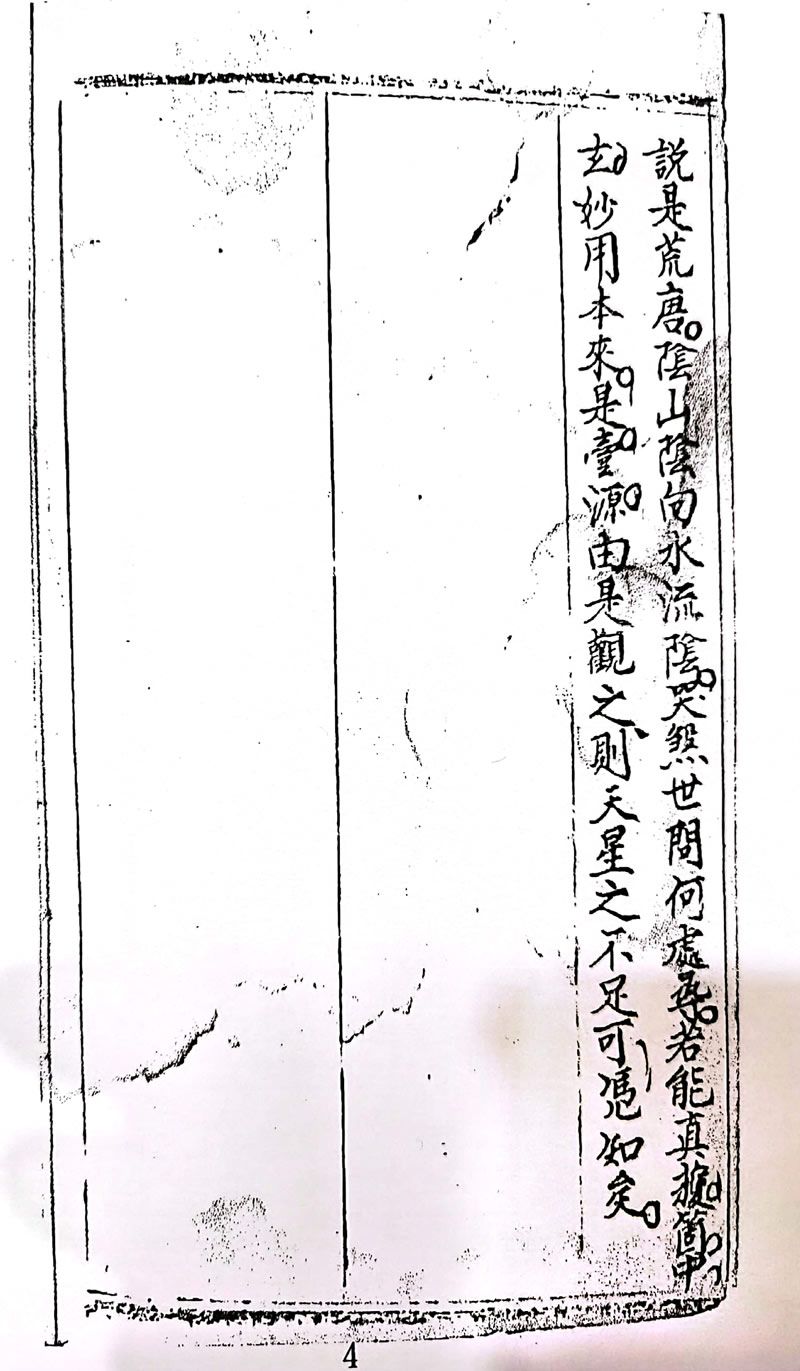 説是荒唐。陰山陰向水流陰。哭煞世間何處尋。若能真援箇中
玄妙用本來是臺源由是觀之、則天星之不足可憑知矣。
4